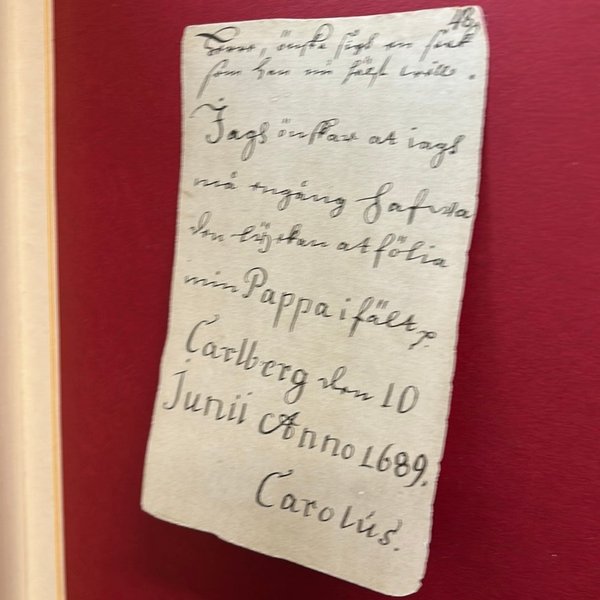 48.
önske sigh en
som han nu hälst wille.
Jagh önskar at iagh
må engång hafwa
den lÿckan at fölia
min Pappa i fält
Carlberg den 10
Junii Anno 1689.
Carolús.